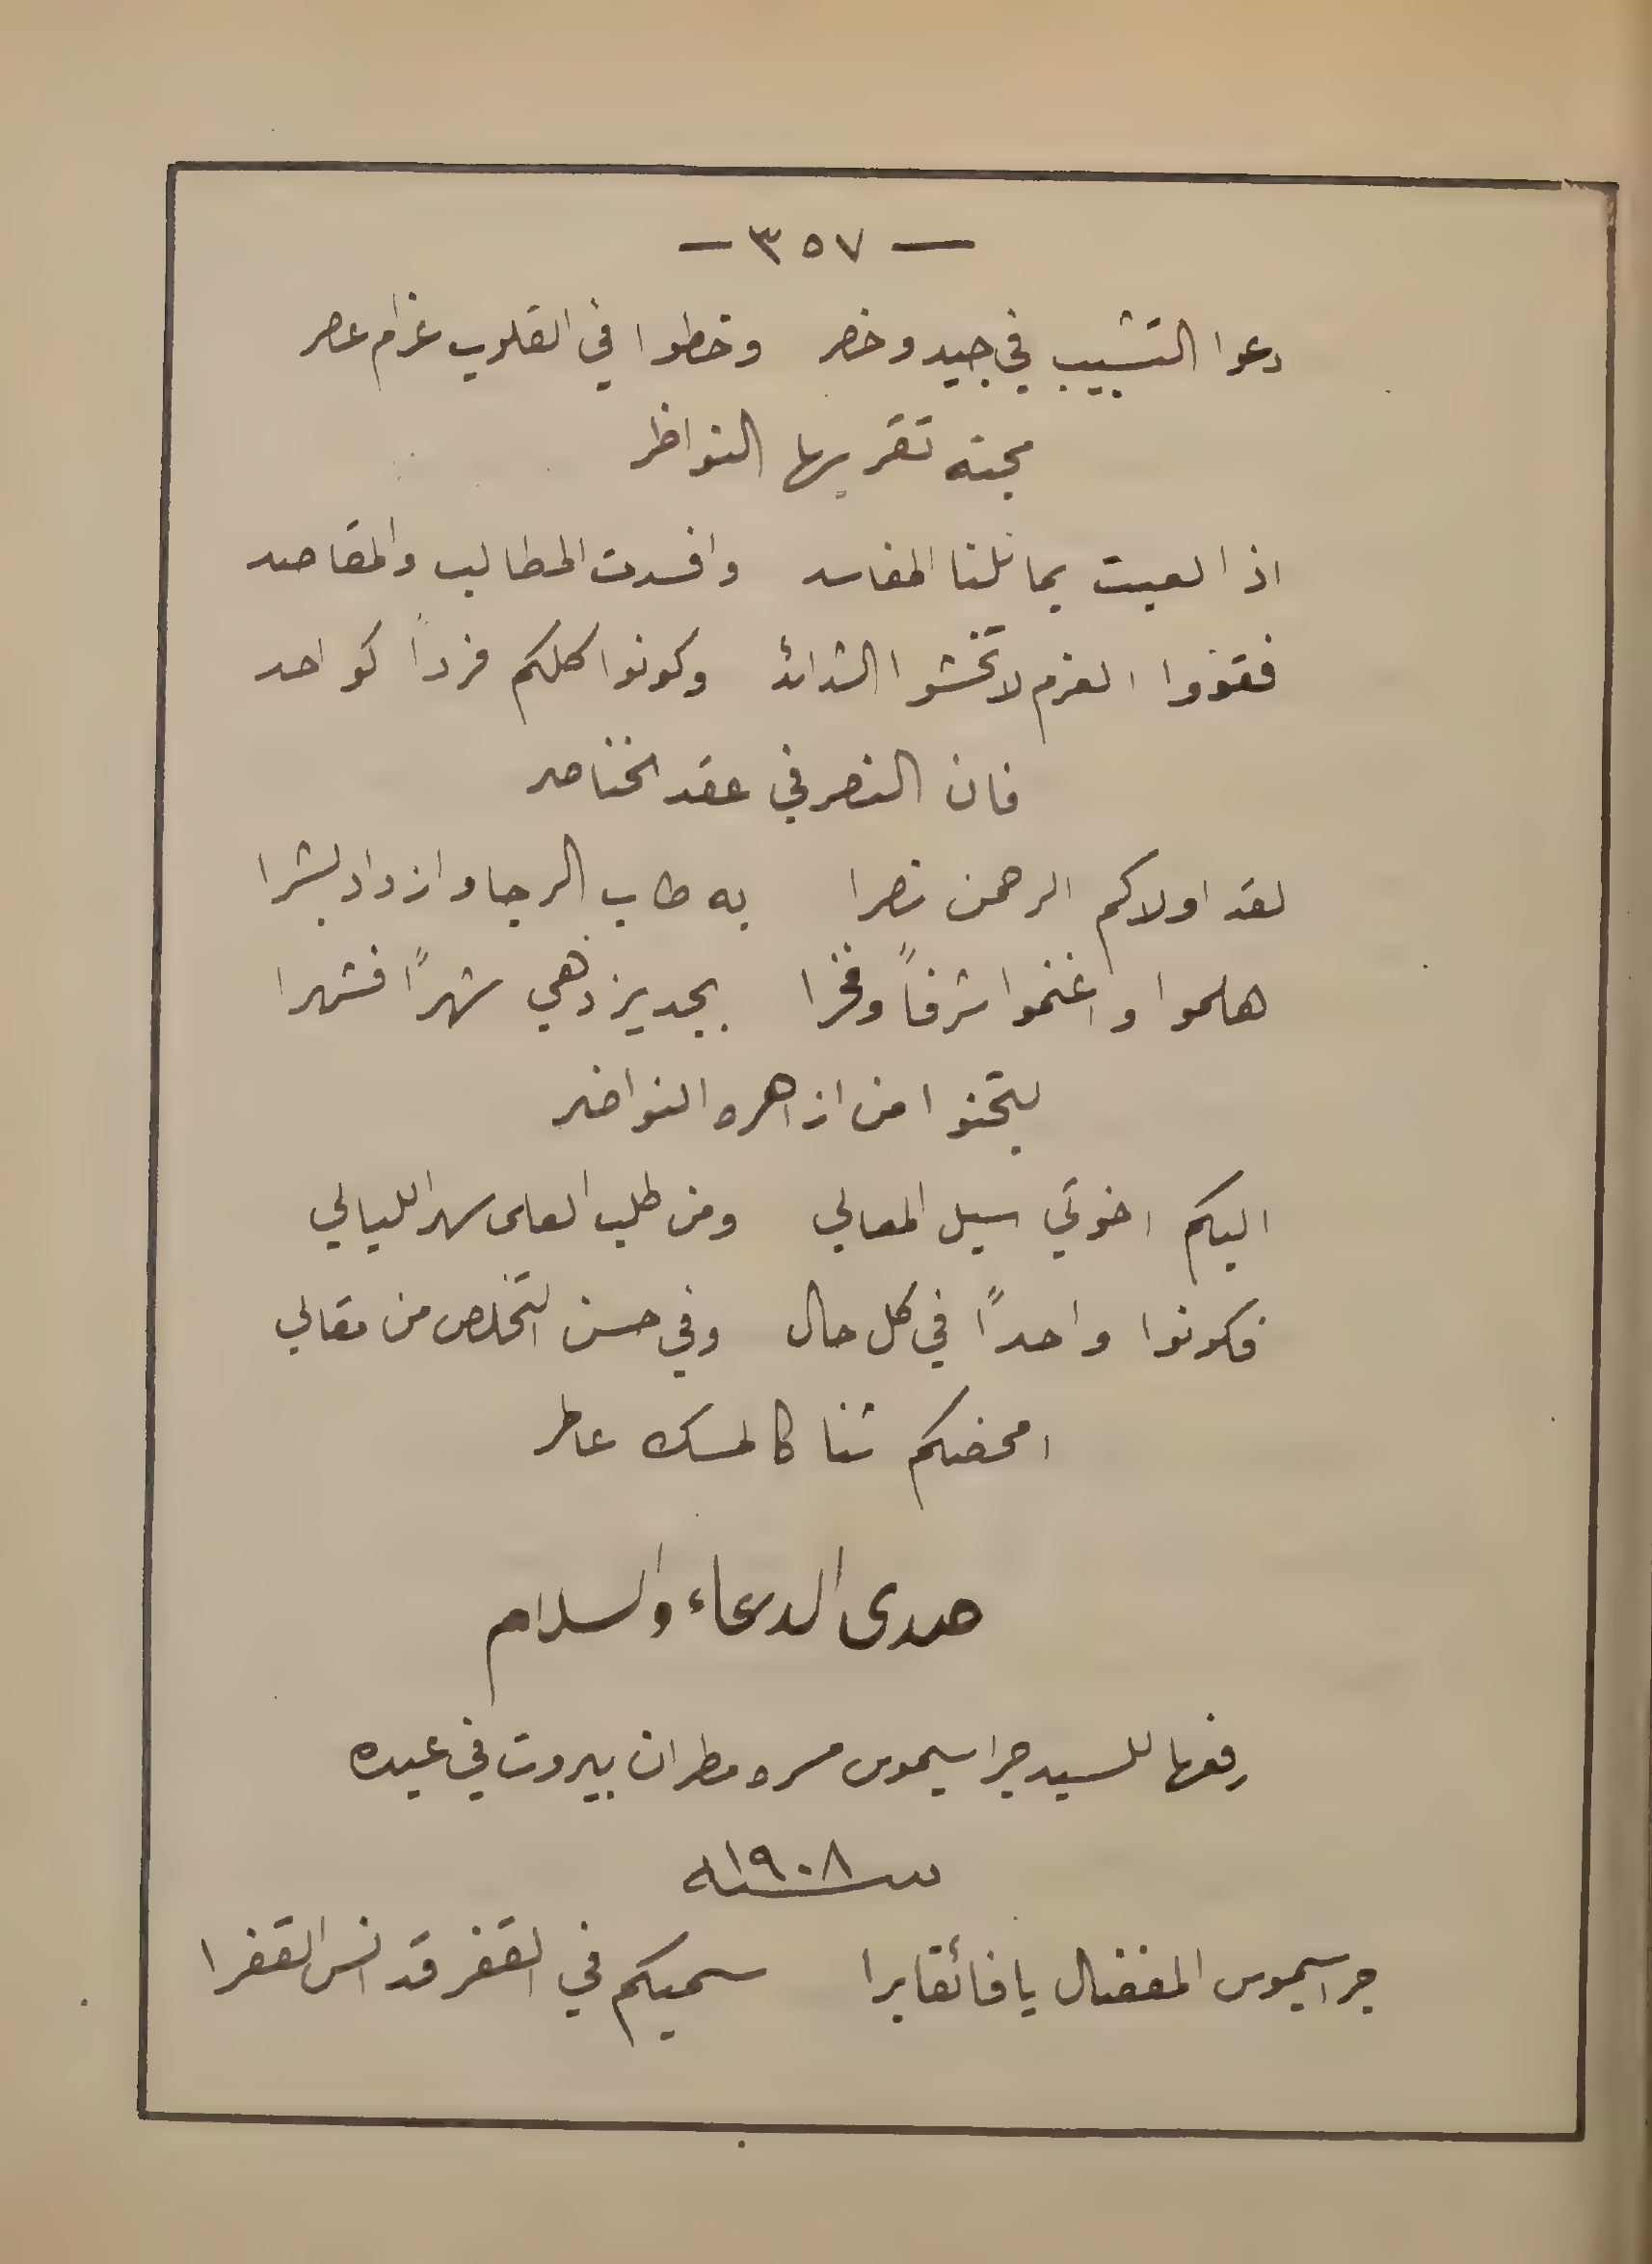 — ٣٥٧ —
دعوا التشبيب في جيد وخصر وخطوا في القلوب غرام عصر
محبته تقر بها النواظر
اذا لعبت بما نلنا المفاسد وافسدت المطالب والمقاصد
فقووا العزم لا تخشوا الشدائد وكونوا كلكم فرداً كواحد
فان النصر في عقد الخناصر
لقد اولاكم الرحمن نصرا به طاب الرجا وازداد بشرا
هلموا واغنموا شرفاً وفخرا بجد يزدهي شهراً فشهرا
لتجنوا من ازاهره النواضر
اليكم اخوتي سبل المعالي ومن طلب العلى سهر الليالي
فكونوا واحداً في كل حال وفي حسن التخلص من مقالي
امحضكم ثنا كالمسك عاطر
صدى الدعاء والسلام
رفعها للسيد جراسيموس مسره مطران بيروت في عيده
سنة ١٩٠٨
جراسيموس المفضال يا فائقا برا سميكم في القفر قد انس القفرا